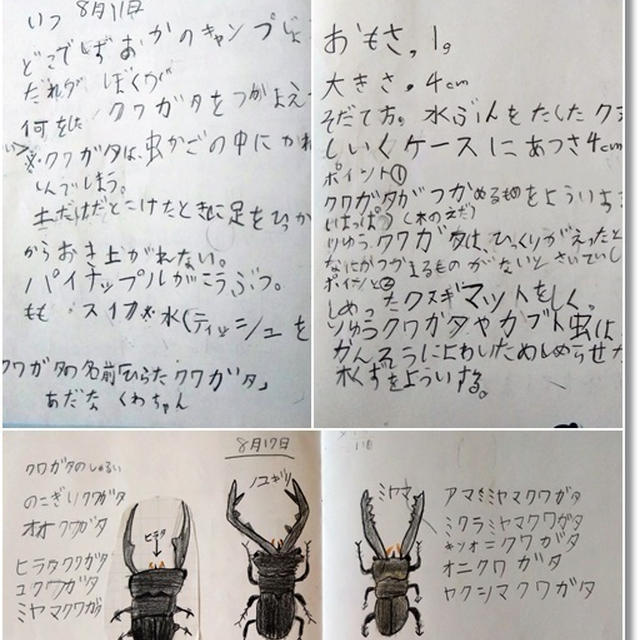 いつ 8月11日
どこで
のキャンプじょ
だれが ぼくが
何をした クワガタをつかまえ
クワガタは、虫かごの中に
しんでしまう。
土だけだとこけたときに足をひっか
からおき上がれない。
パイナップルがこうぶつ。
もも スイカ× 水(ティッシュを
クワガタの名前「ひらたクワガタ」
あだな くわちゃん
おもさ。1g
大きさ。4cm
そだて方。水ぶんをたしたクヌ
しいくケースにあつさ4cm
ポイント①
クワガタがつかめるものをよういする
いはっぱ(木のえだ)
りゆう クワガタは、ひっくりかえったと
なにかつかまるものがないと
ポイント②
しめったクヌギマットをしく。
りゆう クワガタやカブト虫は
かんそうによわいためしめらせ
木くずをよういする。
8月17日
クワガタのしゅるい
のこぎりクワガタ
オオクワガタ
ヒラタクワガタ
コクワガタ
ミヤマクワガタ
ヒラタ
ノコギリ
ミヤマ
アマミミヤマクワガタ
ミクラミヤマクワガタ
キンオニクワガタ
オニクワガタ
ヤクシマクワガタ